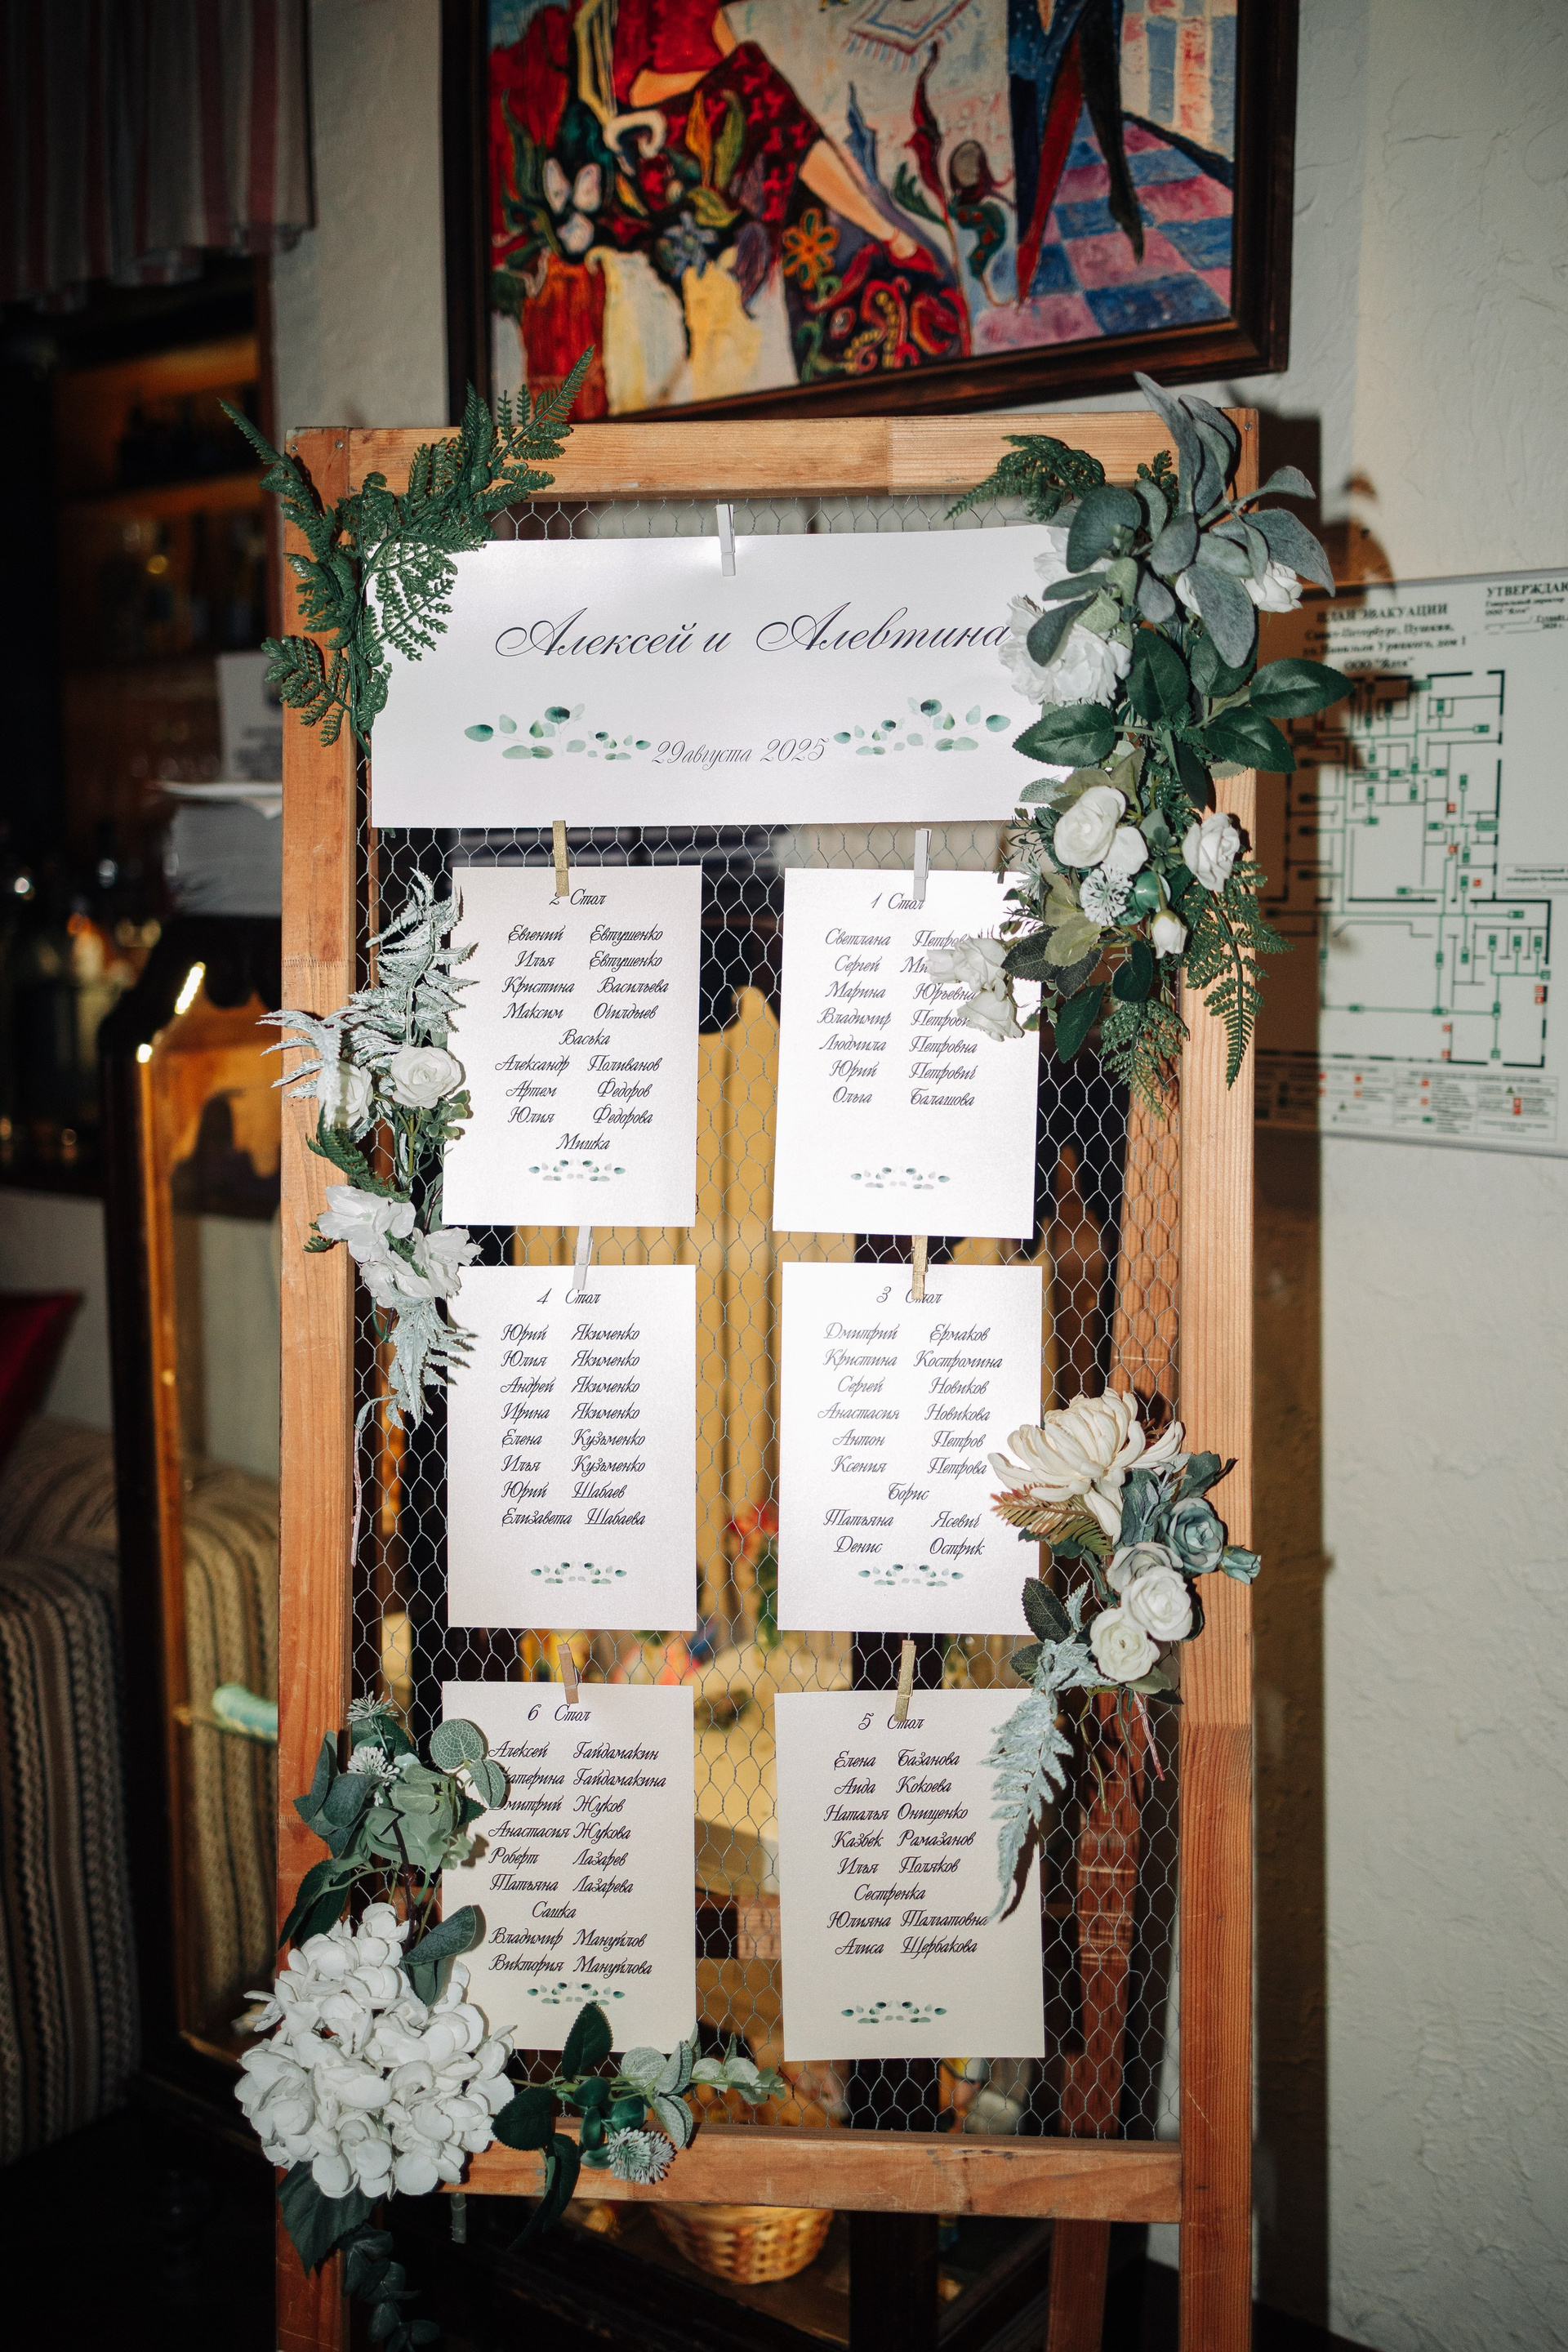 Алексей и Алевтина
29 августа 2025
2 Стол
Евгений Евтушенко
Илья Евтушенко
Кристина Васильева
Максим
Васька
Александр Поливанов
Артем Федоров
Юлия Федорова
Мишка
1 Стол
Светлана
Сергей
Марина Юрьевна
Владимир
Людмила Петровна
Юрий Петрович
Ольга Балашова
4 Стол
Юрий Якименко
Юлия Якименко
Андрей Якименко
Ирина Якименко
Елена Кузьменко
Илья Кузьменко
Юрий Шабаев
Елизавета Шабаева
3 Стол
Дмитрий Ермаков
Кристина Костромина
Сергей Новиков
Анастасия Новикова
Антон Петров
Ксения Петрова
Борис
Татьяна Ясевич
Денис Острик
6 Стол
Алексей Гайдамакин
Гайдамакина
Дмитрий Жуков
Анастасия Жукова
Роберт Лазарев
Татьяна Лазарева
Сашка
Владимир Мануйлов
Виктория Мануйлова
5 Стол
Елена Базанова
Аида Кокоева
Наталья Онищенко
Казбек Рамазанов
Илья Поляков
Сестренка
Юлияна Талгатовна
Алиса Щербакова
ПЛАН ЭВАКУАЦИИ
Санкт-Петербург, Пушкин,
дом 1
ООО "Ялта"